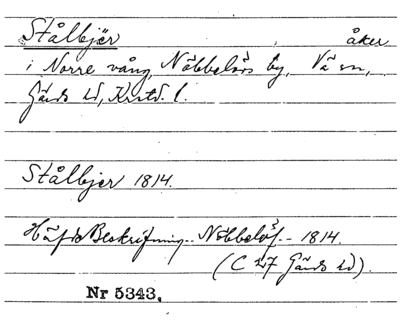 Stålbjär åker
i Norre vång, Nöbbelövs by, Vä sn,
Gärds hd, Krstd. l.
Stålbjer 1814.
Häfde Beskrifning.. Nöbbelöf.. 1814.
(C 27 Gärds hd).
Nr 5343.